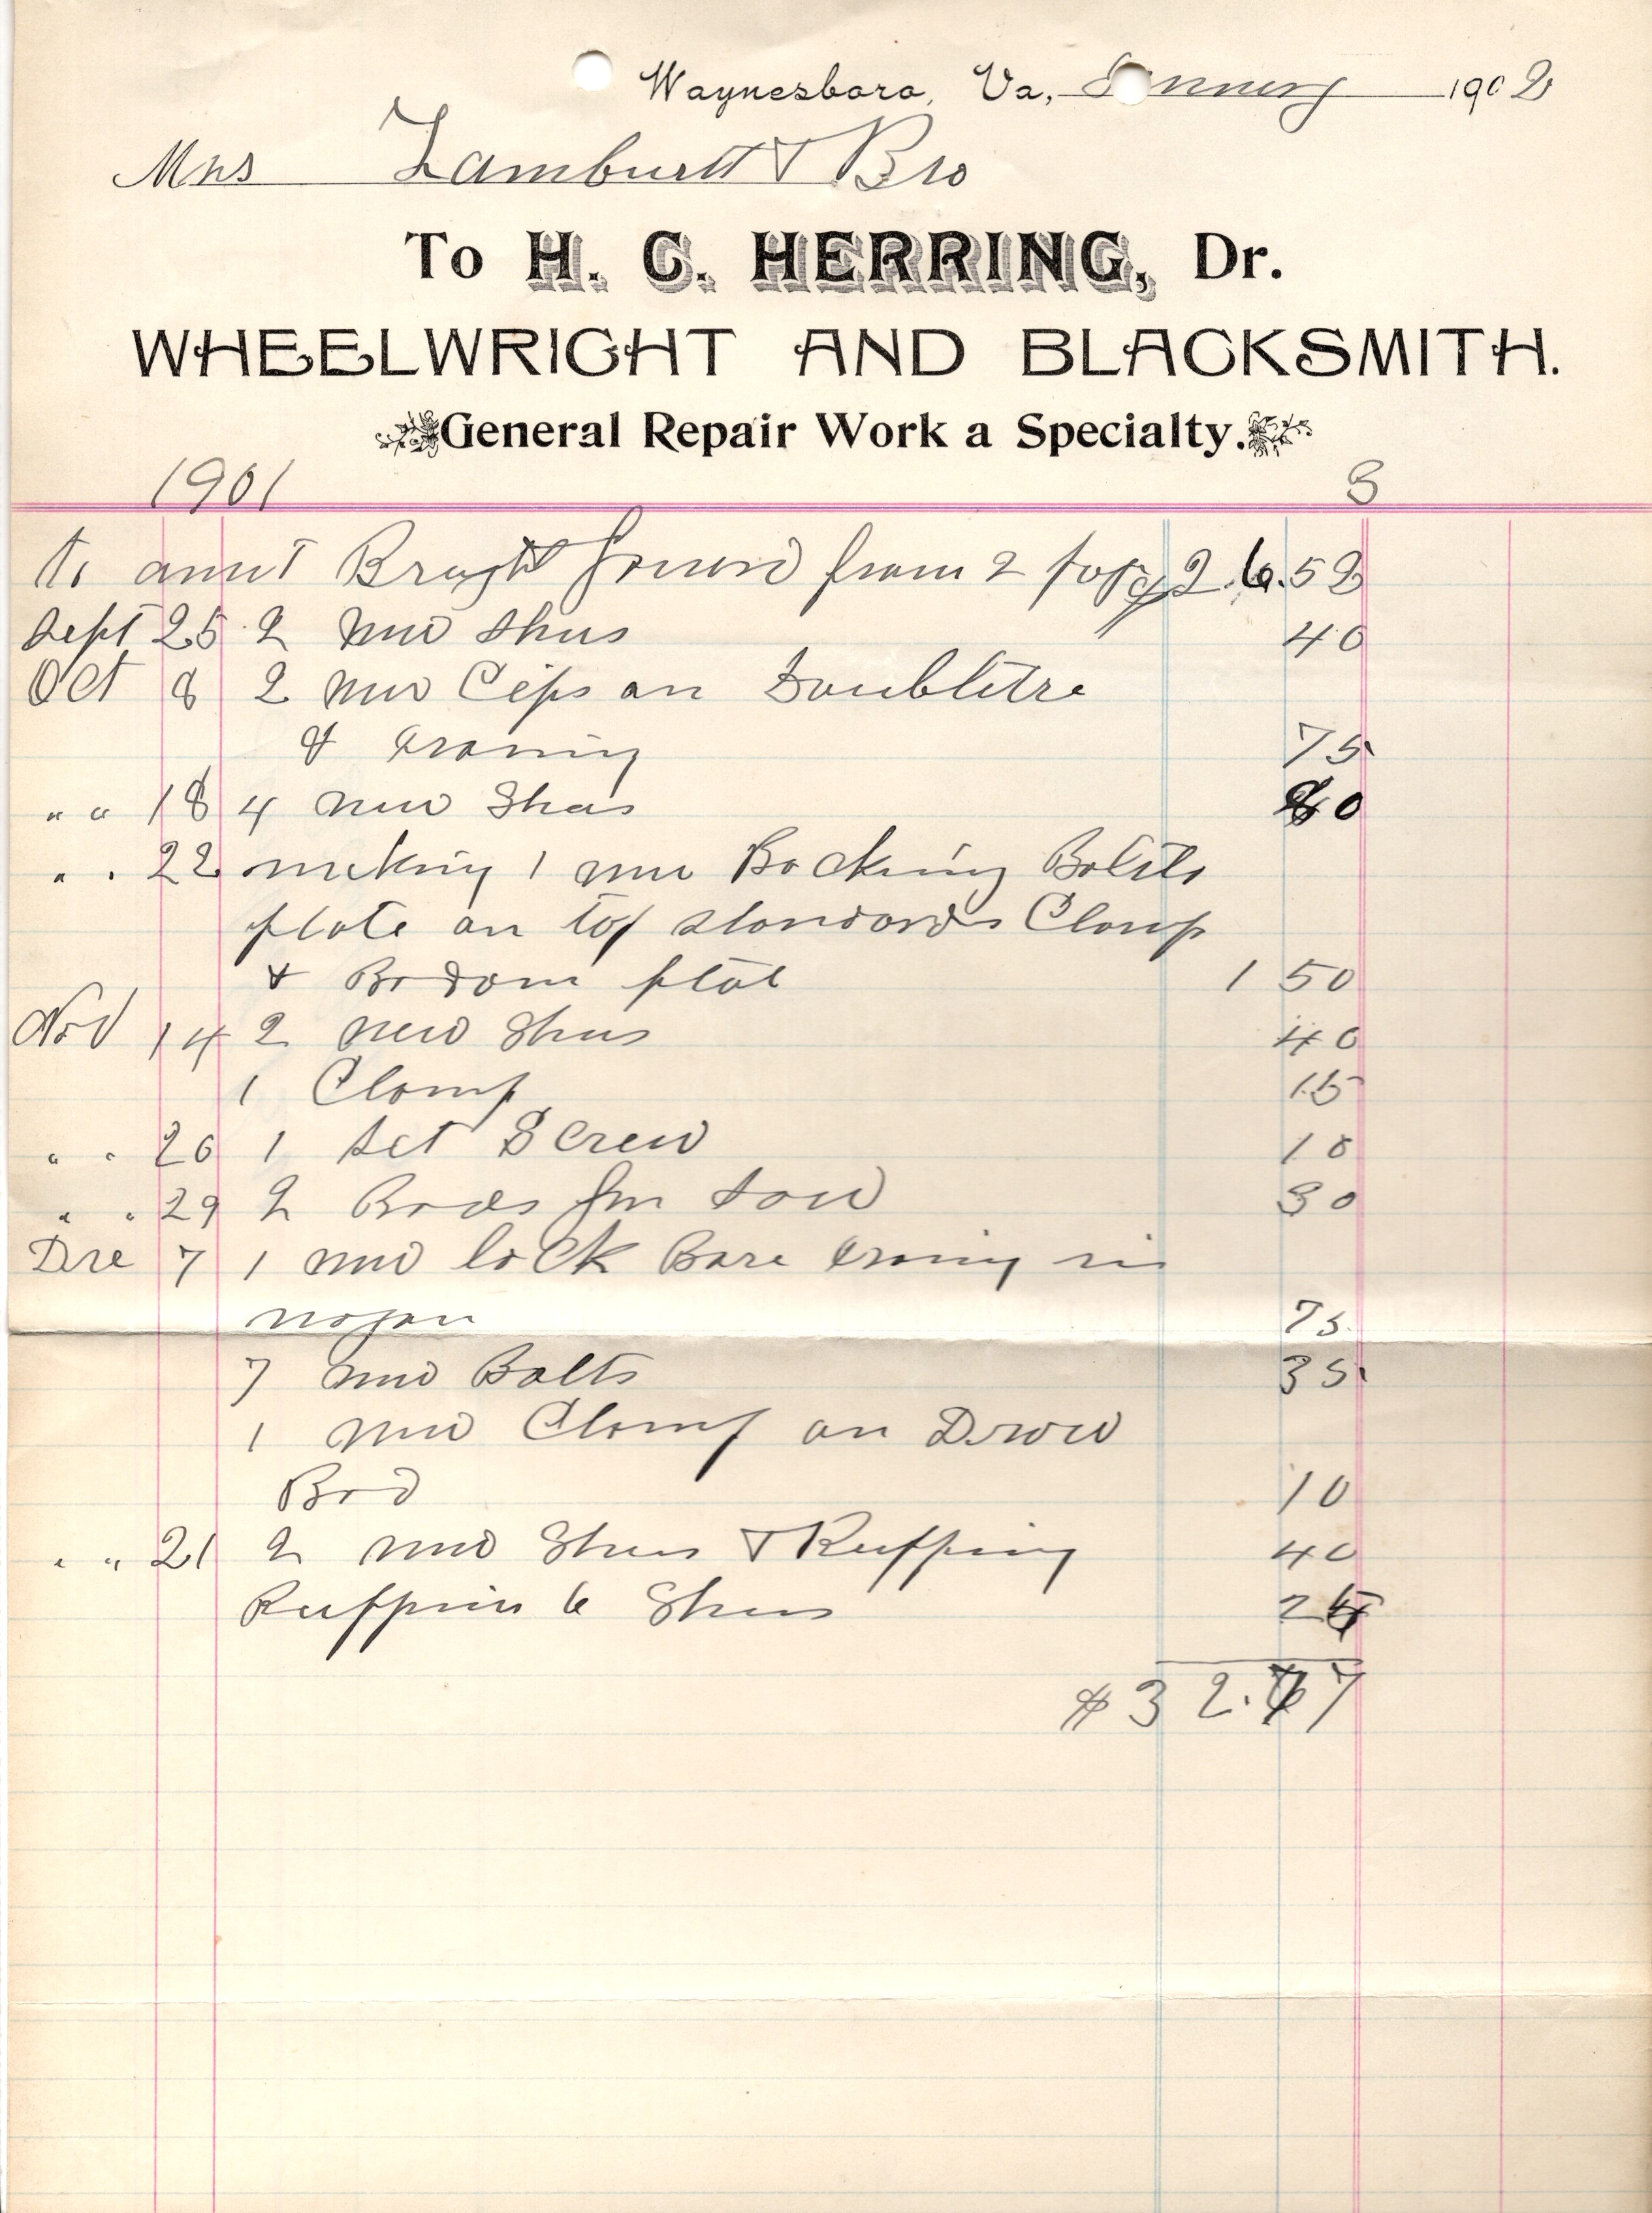 Waynesboro, Va., January 1902
Mrs Lambert & Bro
To H. C. HERRING, Dr.
WHEELWRIGHT AND BLACKSMITH.
General Repair Work a Specialty.
1901 3
To amt from 2 26.52
Sept 25 2 new Shus 40
Oct 8 2 new Cips on Doubletre
& Irong 75
" " 18 4 new Shus 80
" " 22 making 1 new Bolts
plate on top standards Clamp
& plat 1 50
Nov 14 2 new Shus 40
1 Clamp 15
" " 26 1 Set Screw 10
" " 29 2 Rods for 30
Dec 7 1 new lock Bare Irong in
wagon 75
7 new Bolts 35
1 new Clamp on Drow
Rod 10
" " 21 2 new Shus & Ruffing 40
Ruffing 6 Shus 25
$32.77